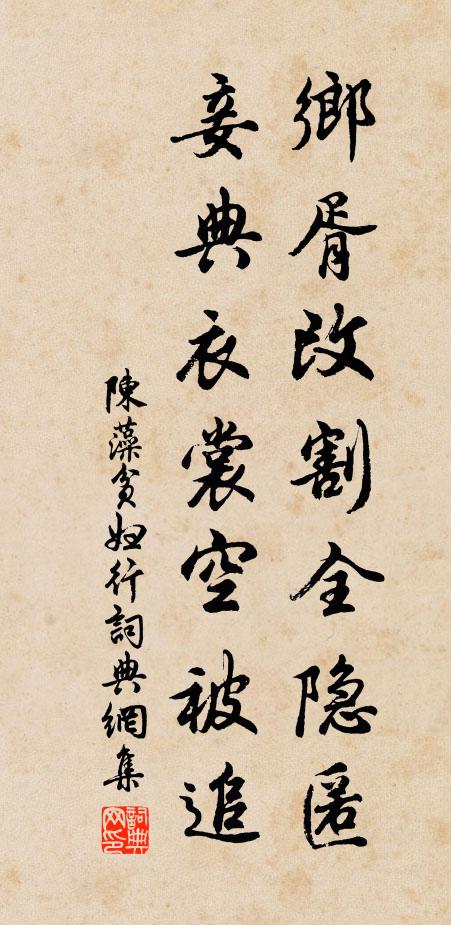 鄉胥改割全隐匿
妾典衣裳空被追
陳藻貧婦行詞典網集
詞典网印